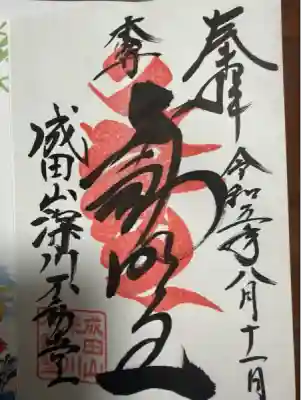 奉拝
令和五年八月十一日
本尊
不動明王
成田山深川不動堂